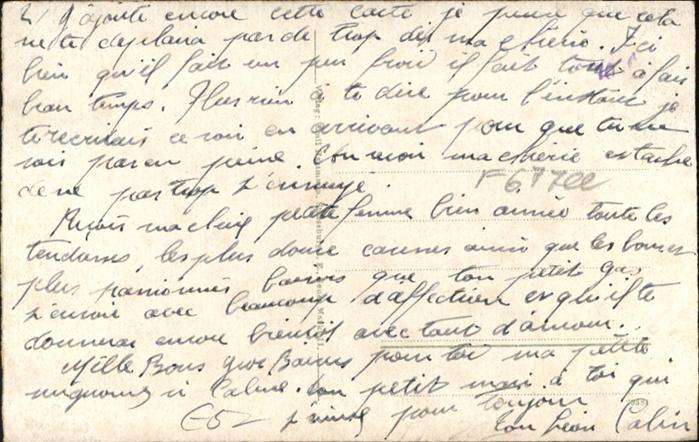 2/ J'ajoute encore cette carte je pense que cela
ne te deplaira pas de trop dis ma chérie. Ici
bien qu'il fait un peu froid il fait tout à fait
beau temps. Plus rien à te dire pour l'instant je
t'ecrirais ce soir en arrivant pour que tu ne
sois pas en peine. Aime moi ma chérie et tache
de ne pas trop t'ennuye.
F 6
Reçois ma chere petite femme bien aimée toute les
tendresses, les plus douce caresses ainsi que les bonnes
plus passionnés baisers que ton petit gas
t'envoie avec beaucoup d'affection et qu'il te
donnera encore bientôt avec tant d'amour..
Mille Bons gros Baisers pour toi ma petite
mignonne à Ton petit mari à toi qui
t'aime pour toujours
Ton Léon